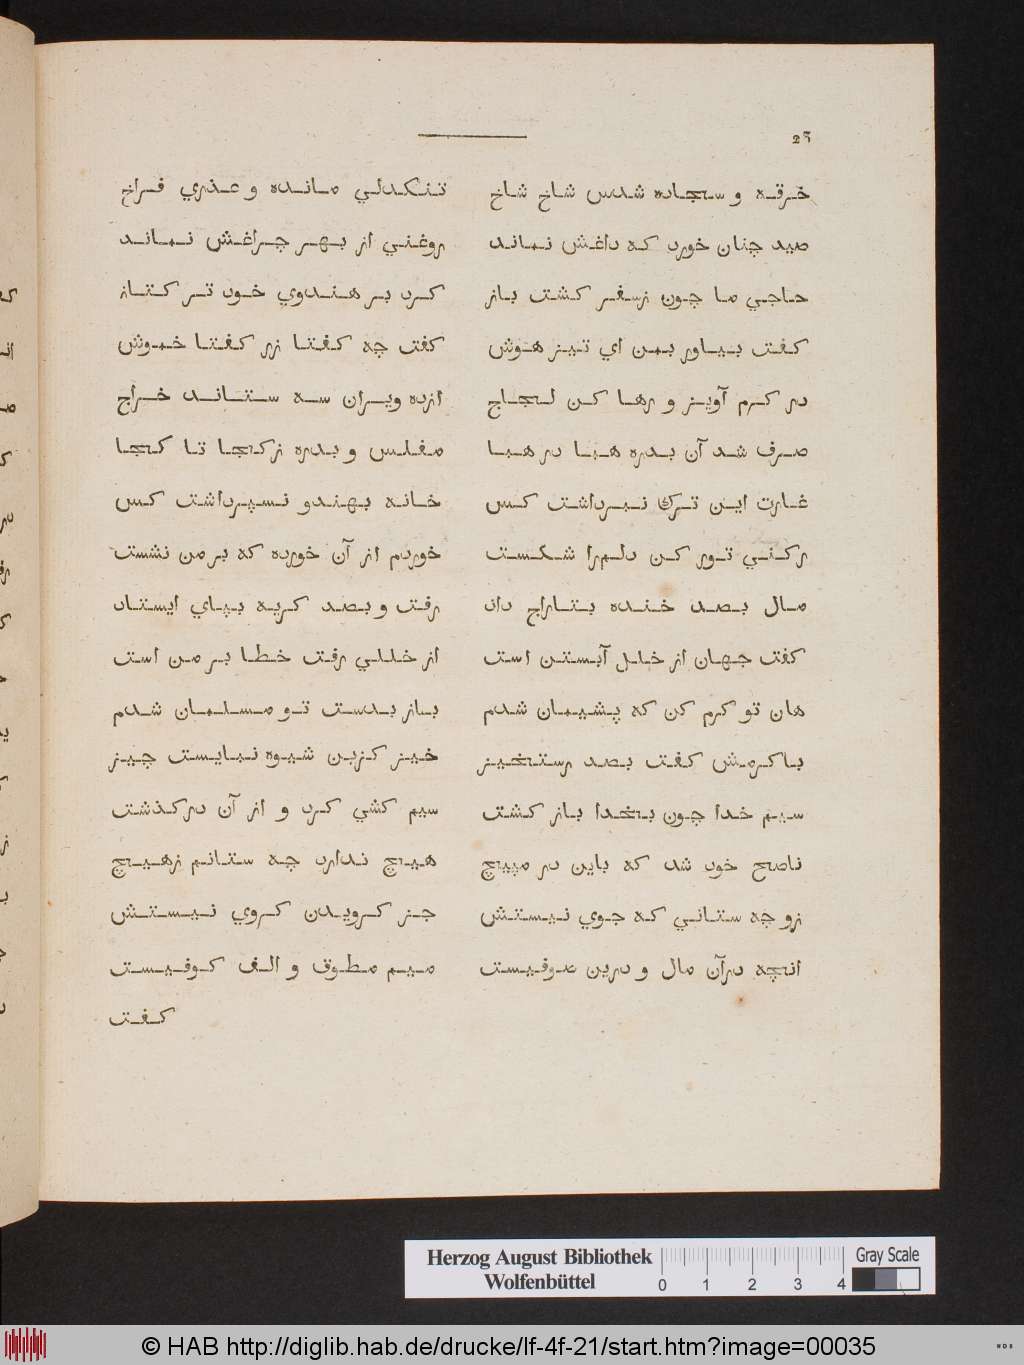 خرقه و سجاده شدس شاخ شاخ تنکدلي مانده و عذري فراخ
صيد چنان خورد که داغش نماند روغني از بهر چراغش نماند
حاجي ما چون زسفر کشت باز کرد بر هندوي خود تر کتاز
کفت بياور بمن اي تيز هوش کفت چه کفتا زر کفتا خموش
در کرم آويز و رها کن لجاج ازده ويران سه ستاند خراج
صرف شد آن بدره هبا در هبا مفلس و بدره زکجا تا کجا
غارت اين ترک نبرداشت کس خانه بهندو نسپرداشت کس
رکني تور کن دلمرا شکست خوردم از آن خورده که بر من نشست
مال بصد خنده بتاراج داد رفت و بصد کريه بپاي ايستاد
کفت جهان از خلل آبستن است از خللي رفت خطا بر من است
هان تو کرم کن که پشيمان شدم باز بدست تو مسلمان شدم
با کرمش کفت بصد رستخيز خيز کزين شيوه نيايست چيز
سيم خدا چون بخدا باز کشت سيم کشي کرد و از آن درکذشت
ناصح خود شد که باين در مپيچ هيچ ندارد چه ستانم زهيچ
زو چه ستاني که جوي نيستش جز کرويدن کروي نيستش
انچه درآن مال و درين صوفيست ميم مطوق و الف کوفيست
کفت
Herzog August Bibliothek
Wolfenbüttel
0 1 2 3 4
Gray Scale
© HAB http://diglib.hab.de/drucke/lf-4f-21/start.htm?image=00035